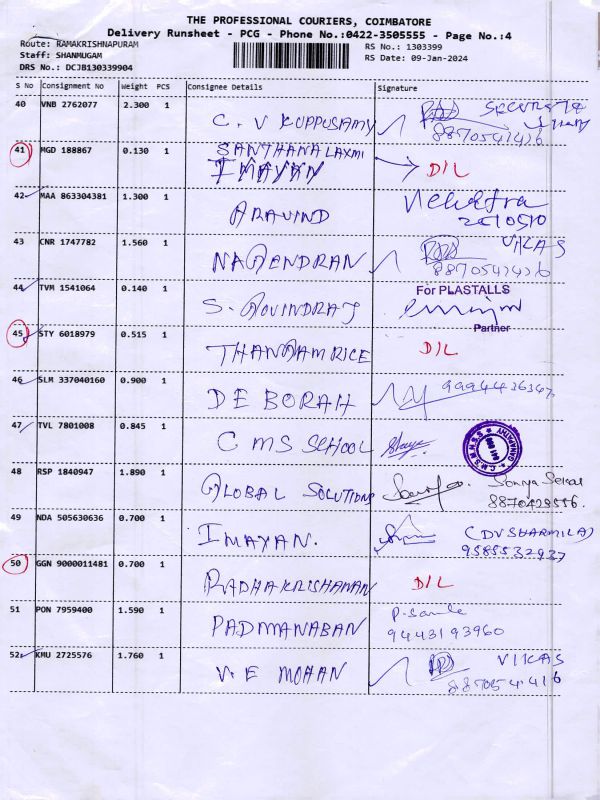 THE PROFESSIONAL COURIERS, COIMBATORE
Delivery Runsheet - PCG - Phone No.:0422-3505555 - Page No.:4
Route: RAMAKRISHNAPURAM
RS No.: 1303399
Staff: SHANMUGAM
RS Date: 09-Jan-2024
DRS No.: DCJB130339904
S No Consignment No Weight PCS Consignee Details Signature
40 VNB 2762077 2.300 1 C. V KUPPUSAMY
8870541416
41 MGD 188867 0.130 1 SANTHANA LAXMI D/L
IMAYAN
42 MAA 863304381 1.300 1 ARAVIND
43 CNR 1747782 1.560 1 NAGENDRAN VIKAS
8870541416
44 TVM 1541064 0.140 1 S. GOVINDRAJ For PLASTALLS
Partner
45 STY 6018979 0.515 1 THANGAM RICE D/L
46 SLM 337040160 0.900 1 DEBORAH
47 TVL 7801008 0.845 1 CMS SCHOOL
48 RSP 1840947 1.890 1 GLOBAL SOLUTIONS
49 NDA 505630636 0.700 1 IMAYAN. (DV SHARMILA)
9585532937
50 GGN 9000011481 0.700 1 RADHAKRISHANAN D/L
51 PON 7959400 1.590 1 PADMANABAN
9443193960
52 KMU 2725576 1.760 1 V. E MOHAN VIKAS
8870541416